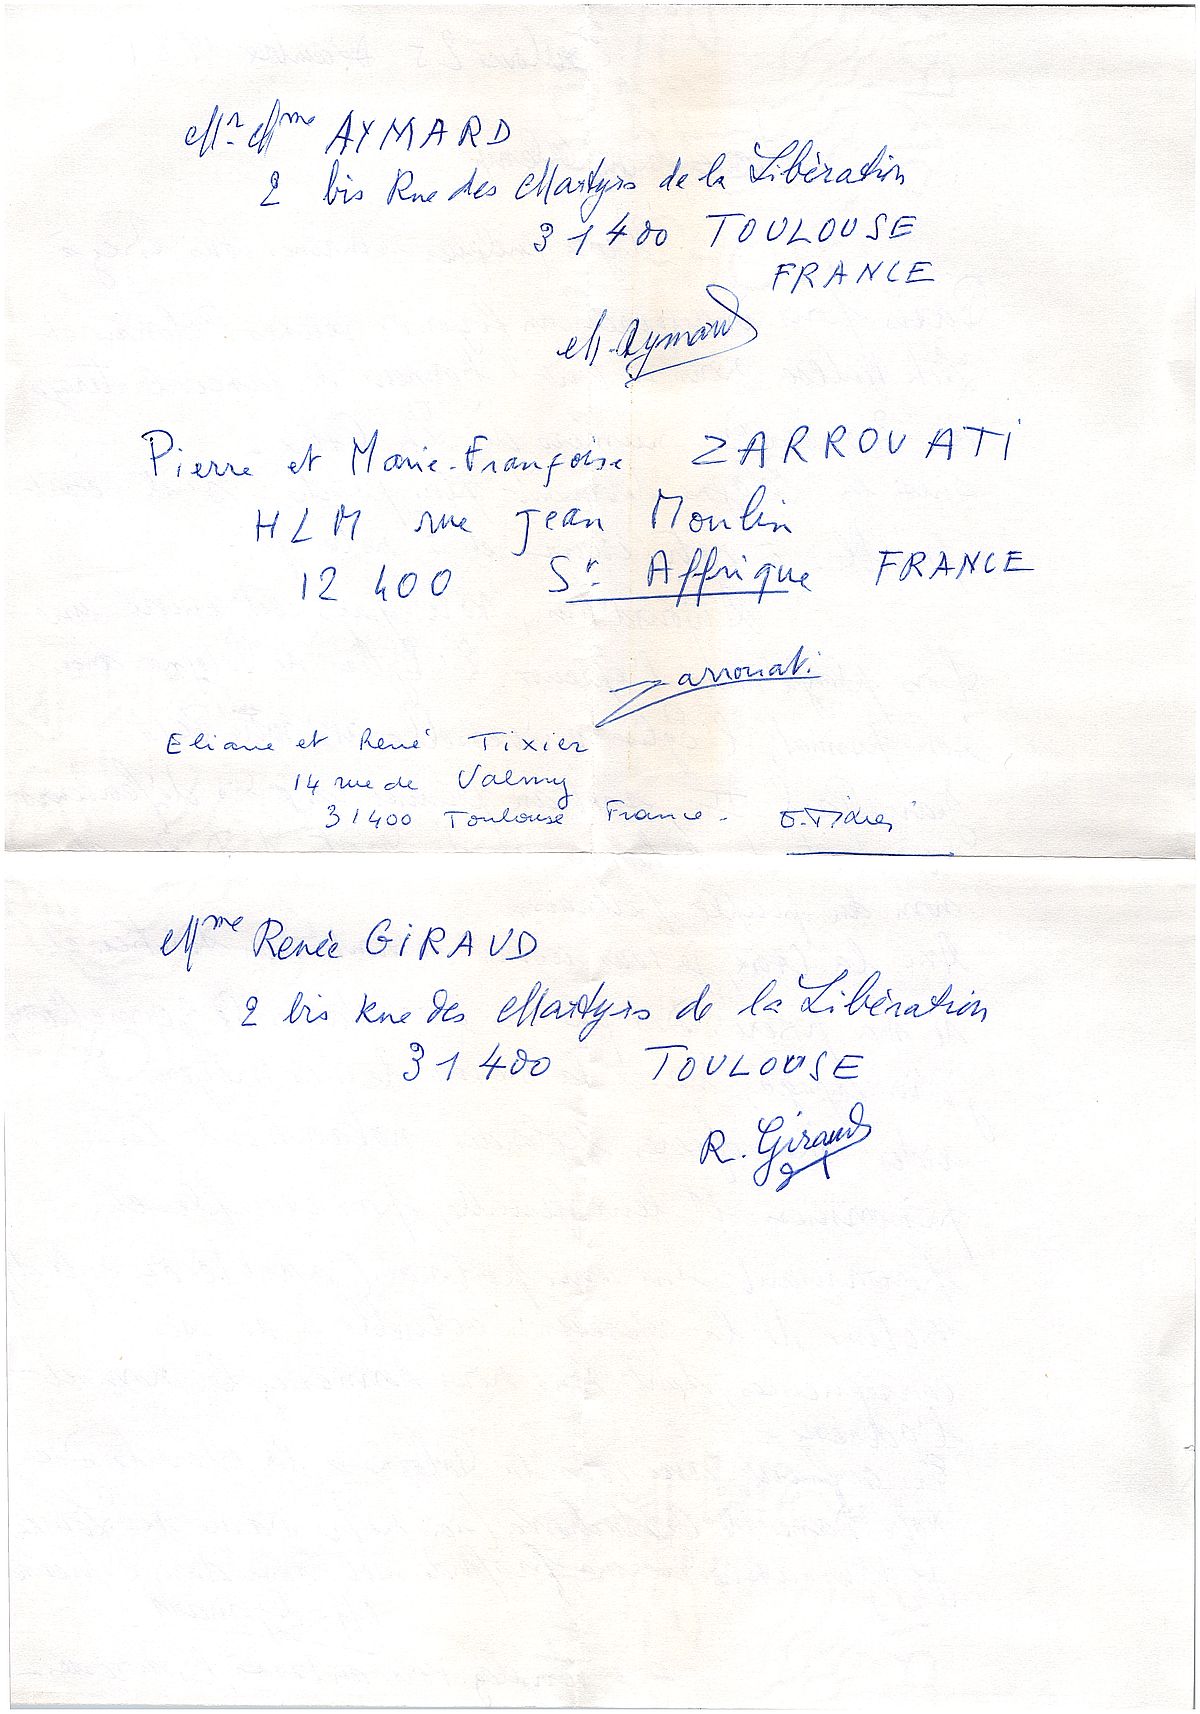 Mr Mme AYMARD
2 bis Rue des Martyrs de la Libération
31400 TOULOUSE
FRANCE
M. Aymard
Pierre et Marie-Françoise ZARROUATI
HLM rue Jean Moulin
12 400 St Affrique FRANCE
Zarrouati
Eliane et René Tixier
14 rue de Valmy
31400 Toulouse France. E. Tixier
Mme Renée GIRAUD
2 bis Rue des Martyrs de la Libération
31400 TOULOUSE
R. Giraud